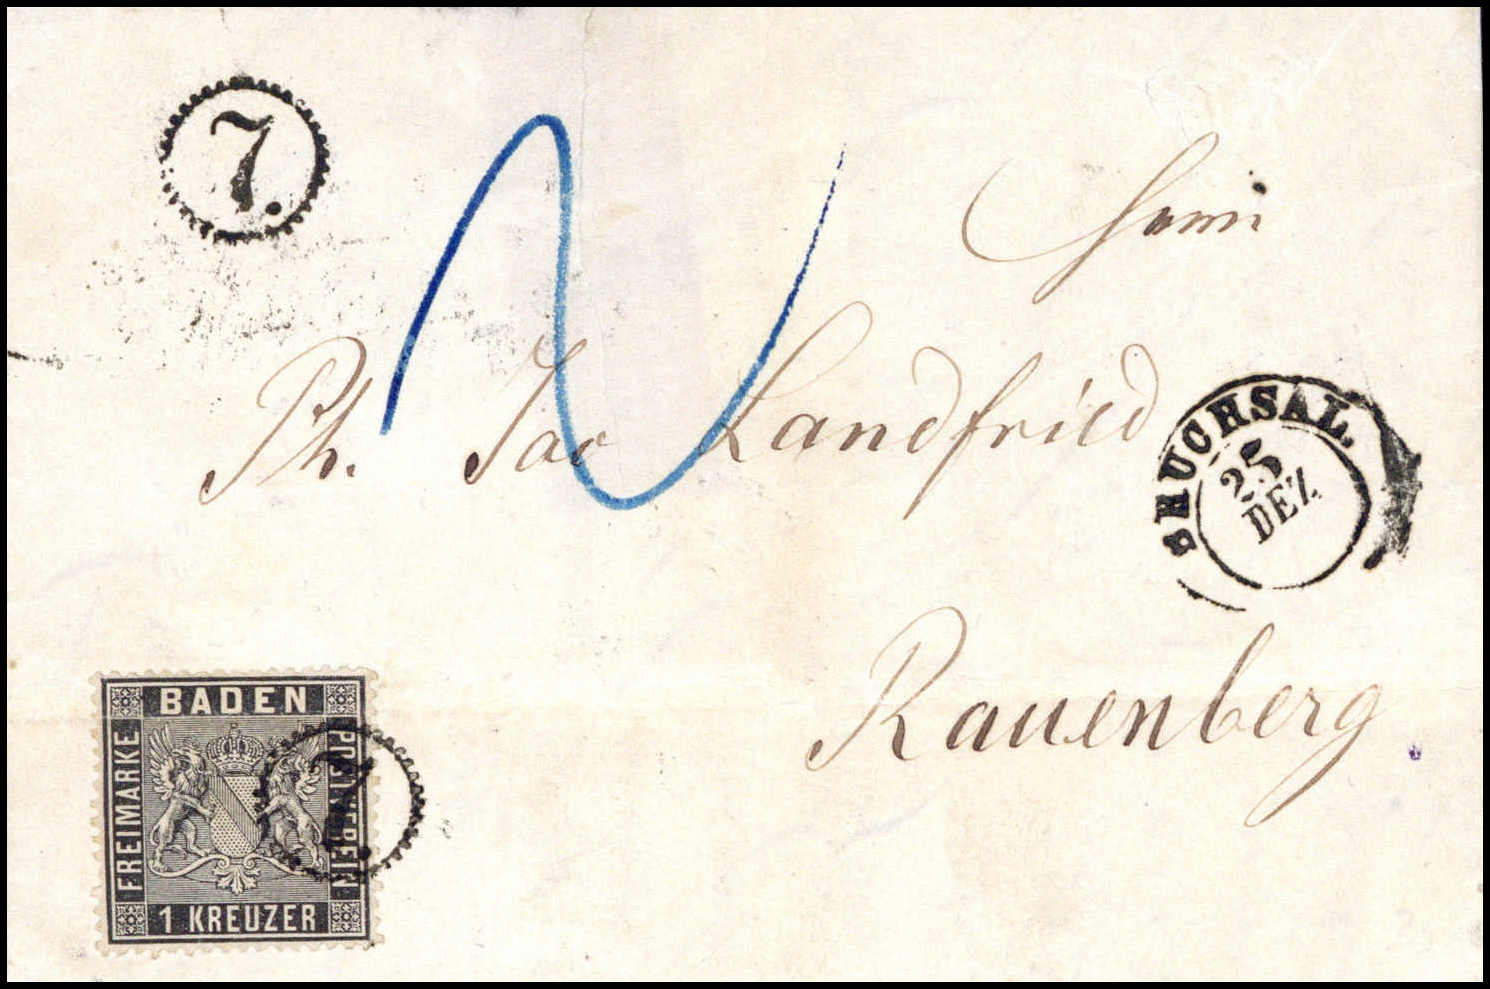 7.
Herrn
Ph. Jac Landfried
BRUCHSAL.
25
DEZ
Rauenberg
BADEN
FREIMARKE
POSTVEREIN
1 KREUZER
7.